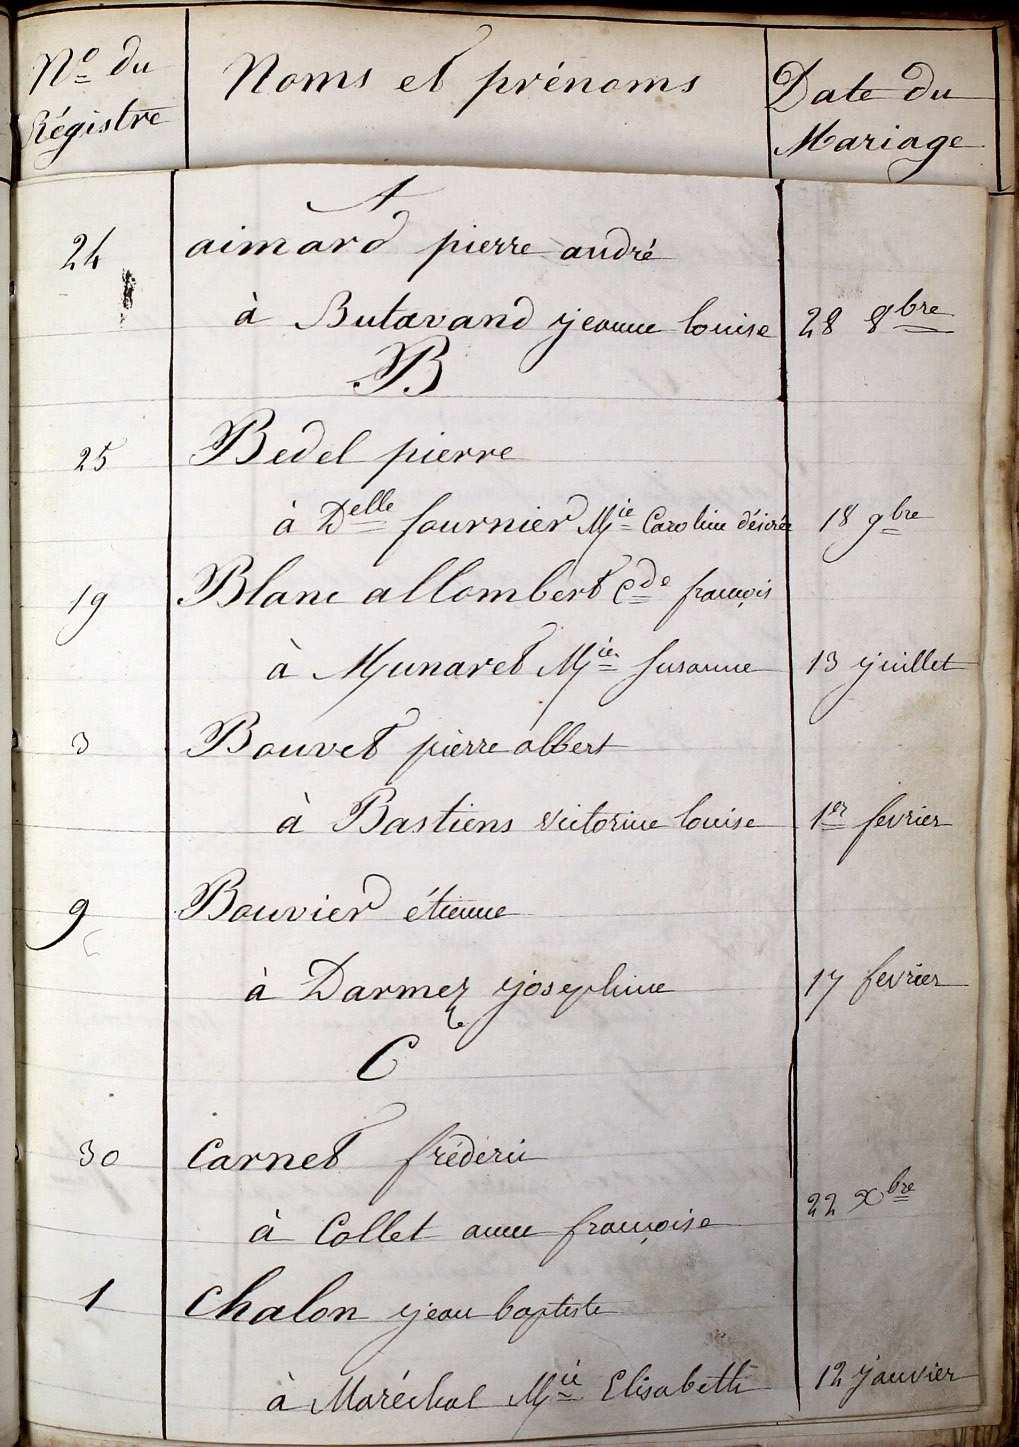 N° du Régistre Noms et prénoms Date du Mariage
A
24 aimard pierre andré
à Butavand jeanne louise 28 8bre
B
25 Bedel pierre
à Delle fournier Mie Caroline désirée 18 9bre
19 Blanc allombert Cde françois
à Munaret Mie Susanne 13 juillet
3 Bouvet pierre albert
à Bastiens victorine louise 1er fevrier
9 Bouvier étienne
à Darmez josephine 17 fevrier
C
30 Carnet fréderic
à Collet anne françoise 22 Xbre
1 Chalon jean baptiste
à Maréchal Mie Elisabeth 12 janvier